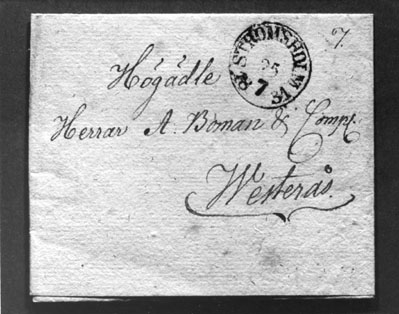 7.
STRÖMSHOLM
25
7
31
Högädle
Herrar A. Boman & Comp.
Westerås.